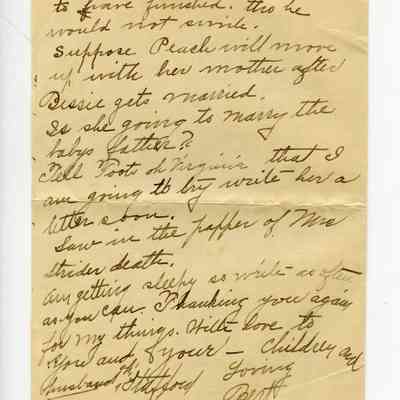 to have finished. tho he
would not smile.
Suppose Peach will move
up with her mother after
Bessie gets married.
Is she going to marry the
babys father?
Tell Toots oh Virginia that I
am going to try write her a
letter soon.
Saw in the papper of Mrs
Strider death.
Am getting sleepy so write as often
as you can. Thanking you again
for my things. With love to
you and your - Children and
husband Stafford
Loving